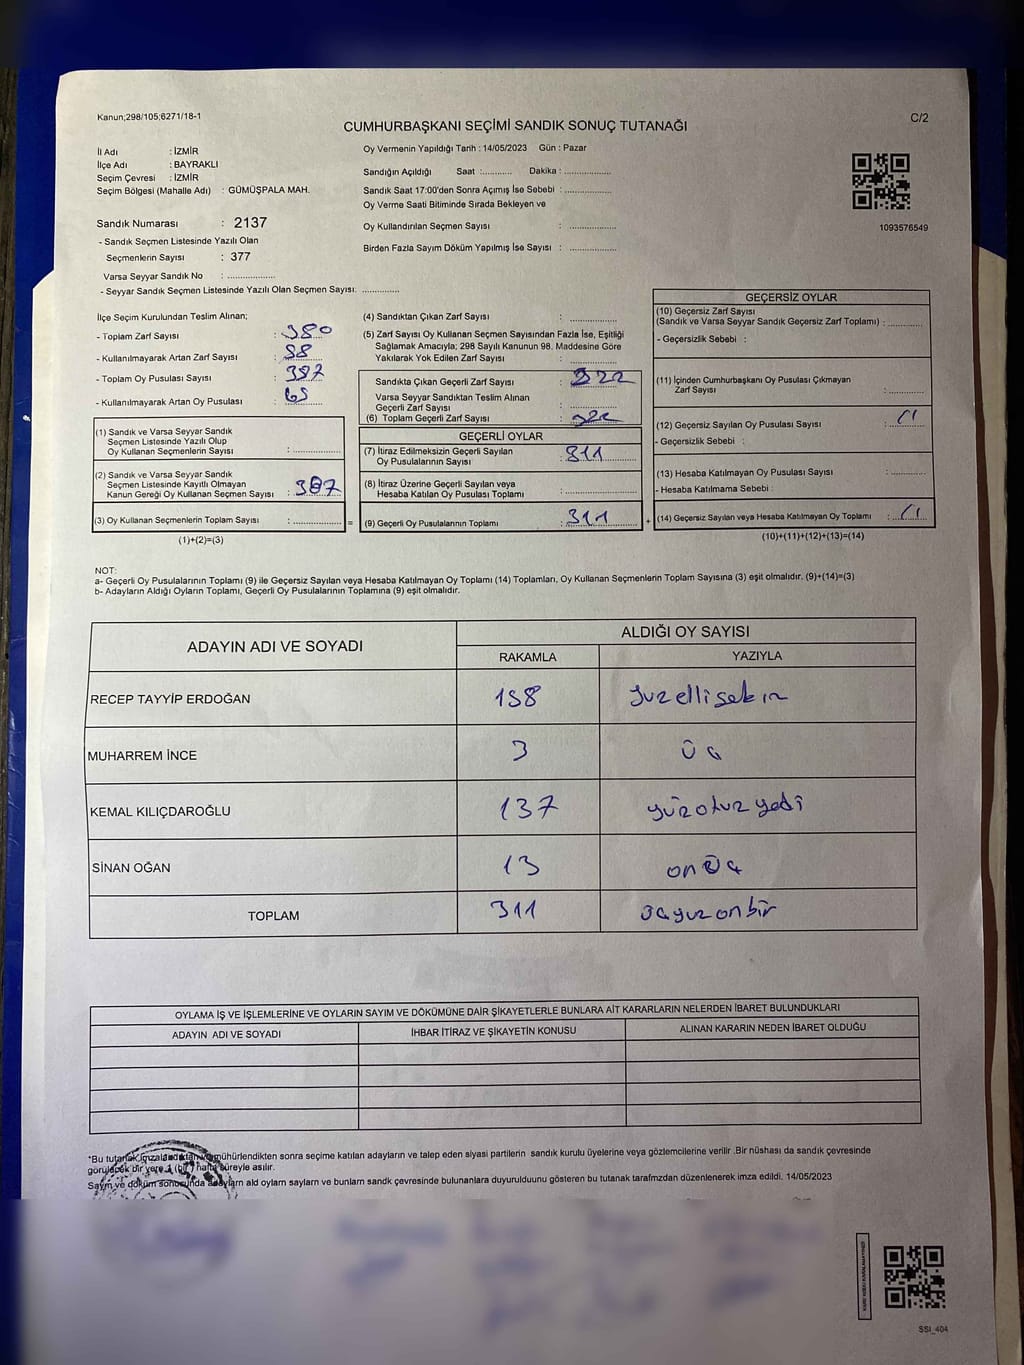 Kanun;298/105;6271/18-1
C/2
CUMHURBAŞKANI SEÇİMİ SANDIK SONUÇ TUTANAĞI
İl Adı : İZMİR
İlçe Adı : BAYRAKLI
Seçim Çevresi : İZMİR
Seçim Bölgesi (Mahalle Adı) : GÜMÜŞPALA MAH.
Sandık Numarası : 2137
- Sandık Seçmen Listesinde Yazılı Olan
Seçmenlerin Sayısı : 377
Varsa Seyyar Sandık No : ................
- Seyyar Sandık Seçmen Listesinde Yazılı Olan Seçmen Sayısı: ............
Oy Vermenin Yapıldığı Tarih : 14/05/2023 Gün : Pazar
Sandığın Açıldığı Saat :.......... Dakika :................
Sandık Saat 17:00'den Sonra Açımış İse Sebebi : ................
Oy Verme Saati Bitiminde Sırada Bekleyen ve
Oy Kullandırılan Seçmen Sayısı : ................
Birden Fazla Sayım Döküm Yapılmış İse Sayısı : ................
1093576549
İlçe Seçim Kurulundan Teslim Alınan;
- Toplam Zarf Sayısı : 380
- Kullanılmayarak Artan Zarf Sayısı :
- Toplam Oy Pusulası Sayısı :
- Kullanılmayarak Artan Oy Pusulası : 65
(1) Sandık ve Varsa Seyyar Sandık
Seçmen Listesinde Yazılı Olup
Oy Kullanan Seçmenlerin Sayısı : ................
(2) Sandık ve Varsa Seyyar Sandık
Seçmen Listesinde Kayıtlı Olmayan
Kanun Gereği Oy Kullanan Seçmen Sayısı :
(3) Oy Kullanan Seçmenlerin Toplam Sayısı : ................ =
(1)+(2)=(3)
(4) Sandıktan Çıkan Zarf Sayısı : ................
(5) Zarf Sayısı Oy Kullanan Seçmen Sayısından Fazla İse, Eşitliği
Sağlamak Amacıyla; 298 Sayılı Kanunun 98. Maddesine Göre
Yakılarak Yok Edilen Zarf Sayısı : ................
Sandıkta Çıkan Geçerli Zarf Sayısı : 322
Varsa Seyyar Sandıktan Teslim Alınan
Geçerli Zarf Sayısı : ................
(6) Toplam Geçerli Zarf Sayısı : 322
GEÇERLİ OYLAR
(7) İtiraz Edilmeksizin Geçerli Sayılan
Oy Pusulalarının Sayısı : 311
(8) İtiraz Üzerine Geçerli Sayılan veya
Hesaba Katılan Oy Pusulası Toplamı : ................
(9) Geçerli Oy Pusulalarının Toplamı : 311 +
GEÇERSİZ OYLAR
(10) Geçersiz Zarf Sayısı
(Sandık ve Varsa Seyyar Sandık Geçersiz Zarf Toplamı) : ............
- Geçersizlik Sebebi :
(11) İçinden Cumhurbaşkanı Oy Pusulası Çıkmayan
Zarf Sayısı : ............
(12) Geçersiz Sayılan Oy Pusulası Sayısı : 11
- Geçersizlik Sebebi :
(13) Hesaba Katılmayan Oy Pusulası Sayısı : ............
- Hesaba Katılmama Sebebi :
(14) Geçersiz Sayılan veya Hesaba Katılmayan Oy Toplamı : 11
(10)+(11)+(12)+(13)=(14)
NOT:
a- Geçerli Oy Pusulalarının Toplamı (9) ile Geçersiz Sayılan veya Hesaba Katılmayan Oy Toplamı (14) Toplamları, Oy Kullanan Seçmenlerin Toplam Sayısına (3) eşit olmalıdır. (9)+(14)=(3)
b- Adayların Aldığı Oyların Toplamı, Geçerli Oy Pusulalarının Toplamına (9) eşit olmalıdır.
ADAYIN ADI VE SOYADI ALDIĞI OY SAYISI
RAKAMLA YAZIYLA
RECEP TAYYİP ERDOĞAN 158 yuzellisekiz
MUHARREM İNCE 3 üç
KEMAL KILIÇDAROĞLU 137 yüzotuzyedi
SİNAN OĞAN 13 onüç
TOPLAM 311 üçyuzonbir
OYLAMA İŞ VE İŞLEMLERİNE VE OYLARIN SAYIM VE DÖKÜMÜNE DAİR ŞİKAYETLERLE BUNLARA AİT KARARLARIN NELERDEN İBARET BULUNDUKLARI
ADAYIN ADI VE SOYADI İHBAR İTİRAZ VE ŞİKAYETİN KONUSU ALINAN KARARIN NEDEN İBARET OLDUĞU
*Bu tutanak imzalandıktan ve mühürlendikten sonra seçime katılan adayların ve talep eden siyasi partilerin sandık kurulu üyelerine veya gözlemcilerine verilir .Bir nüshası da sandık çevresinde
görülecek bir yere 1 (bir) hafta süreyle asılır.
Sayım ve döküm sonosunda adaylarn ald oylarn saylarn ve bunlarn sandk çevresinde bulunanlara duyurulduunu gösteren bu tutanak tarafmzdan düzenlenerek imza edildi. 14/05/2023
SSI_404